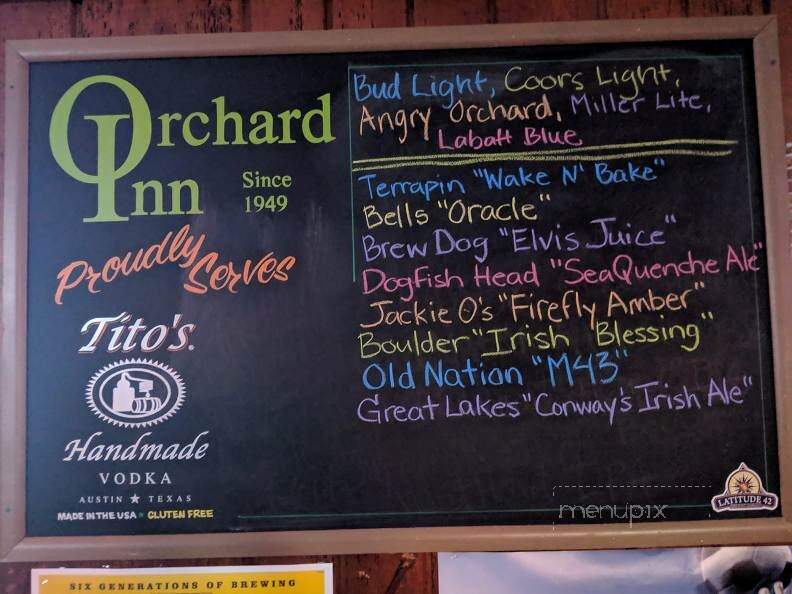 Orchard
Inn
Since
1949
Proudly
Serves
Tito's
Handmade
VODKA
AUSTIN ★ TEXAS
MADE IN THE USA • GLUTEN FREE
Bud Light, Coors Light,
Angry Orchard, Miller Lite,
Labatt Blue
Terrapin "Wake N' Bake"
Bells "Oracle"
Brew Dog "Elvis Juice"
Dogfish Head "SeaQuenche Ale"
Jackie O's "Firefly Amber"
Boulder "Irish Blessing"
Old Nation "M43"
Great Lakes "Conway's Irish Ale"
menupix
LATITUDE 42
SIX GENERATIONS OF BREWING